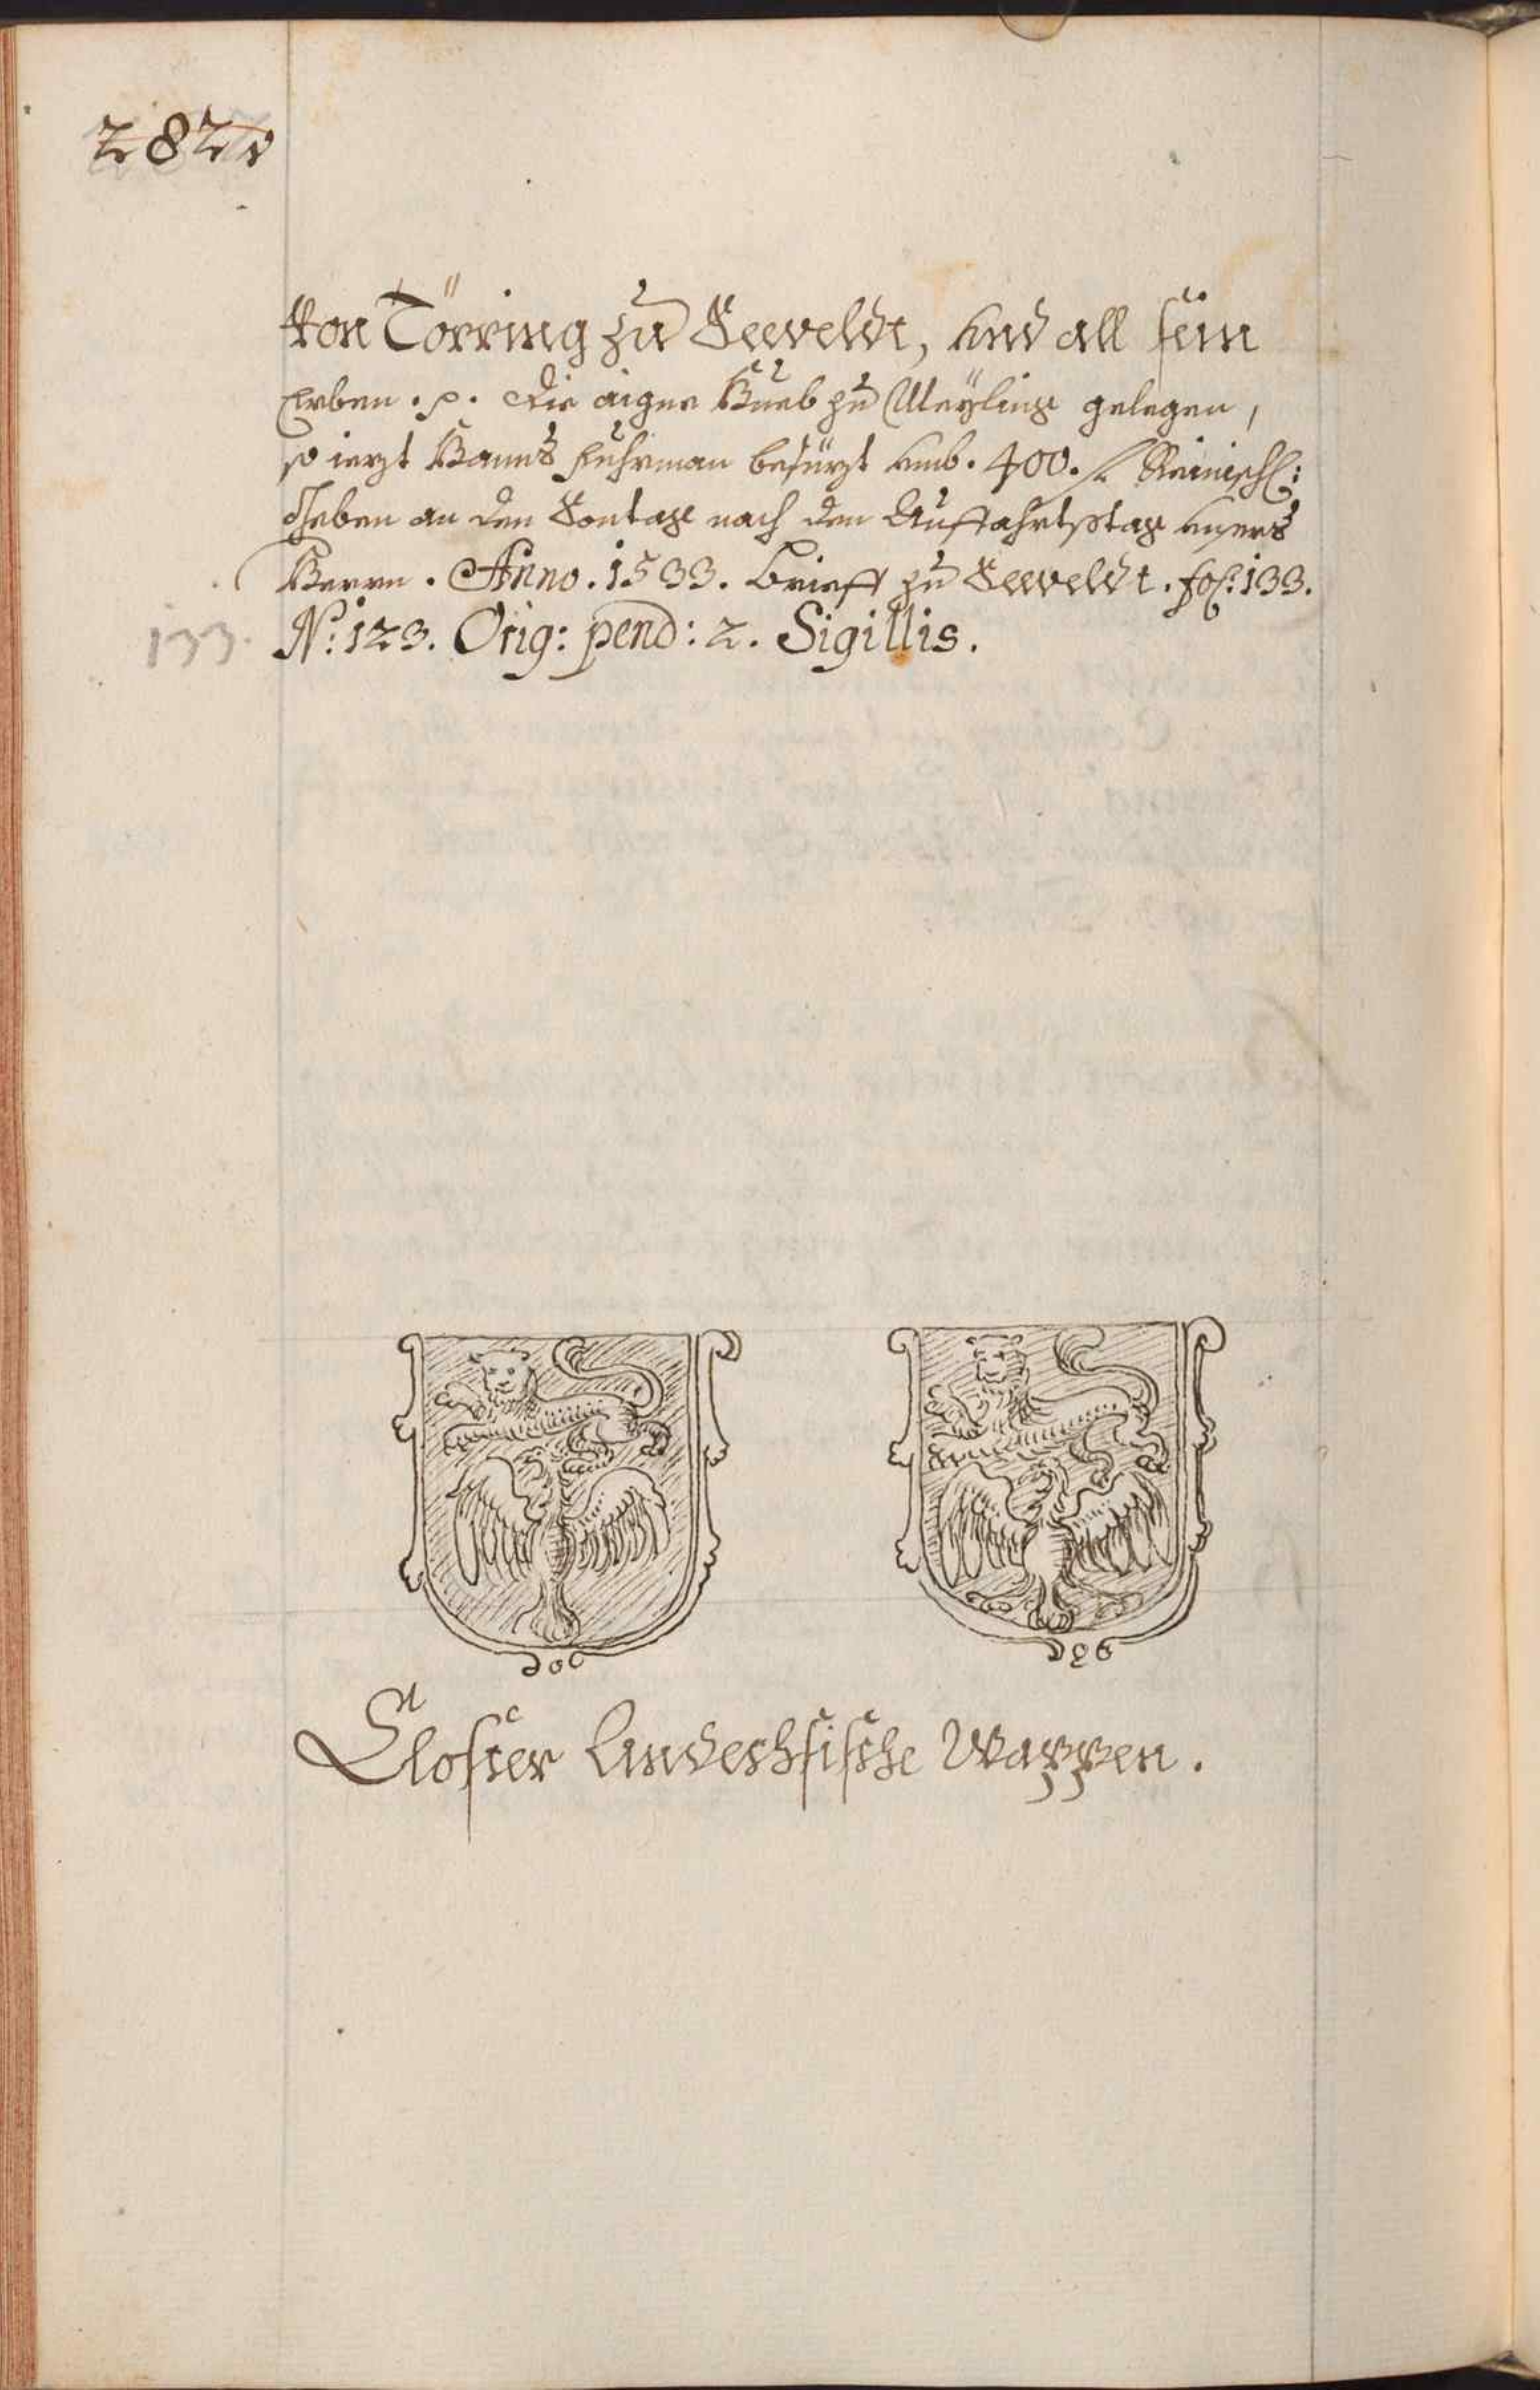 282v
Von Törring zu Seeveldt, und all sein
Erben .p. die aigne Hueb zu Meyling gelegen,
so ietzt Hanns Fuhrman besitzt umb. 400. fl. Reinisch:
Geben an den Sontag nach den Auffahrtstag unsers
Herrn. Anno. 1533. Brieff zu Seeveldt. fol: 133.
133. N: 123. Orig: pend: 2. Sigillis.
Closter Andechsische Wappen.